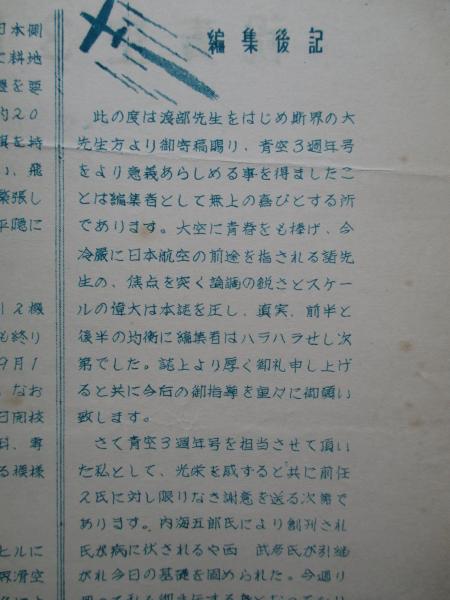 編集後記
此の度は渡部先生をはじめ斯界の大
先生方より御寄稿賜り、青空3週年号
をより意義あらしめる事を得ましたこ
とは編集者として無上の喜びとする所
であります。大空に青春をも捧げ、今
冷厳に日本航空の前途を指される諸先
生の、焦点を突く論調の鋭さとスケー
ルの偉大は本誌を圧し、真実、前半と
後半の均衡に編集者はハラハラせし次
第でした。誌上より厚く御礼申し上げ
ると共に今后の御指導を重々に御願い
致します。
さて青空3週年号を担当させて頂い
た私として、光栄を感ずると共に前任
え氏に対し限りなき謝意を送る次第で
あります。内海五郎氏により創刊され
氏が病に伏されるや西 武彦氏が引継
がれ今日の基礎を固められた。今週り
日本側
耕地
を要
20
を持
い、飛
緊張し
平穏に
12機
も終り
9月1
なお
日開校
科、専
る模様
ヒルに
界滑空